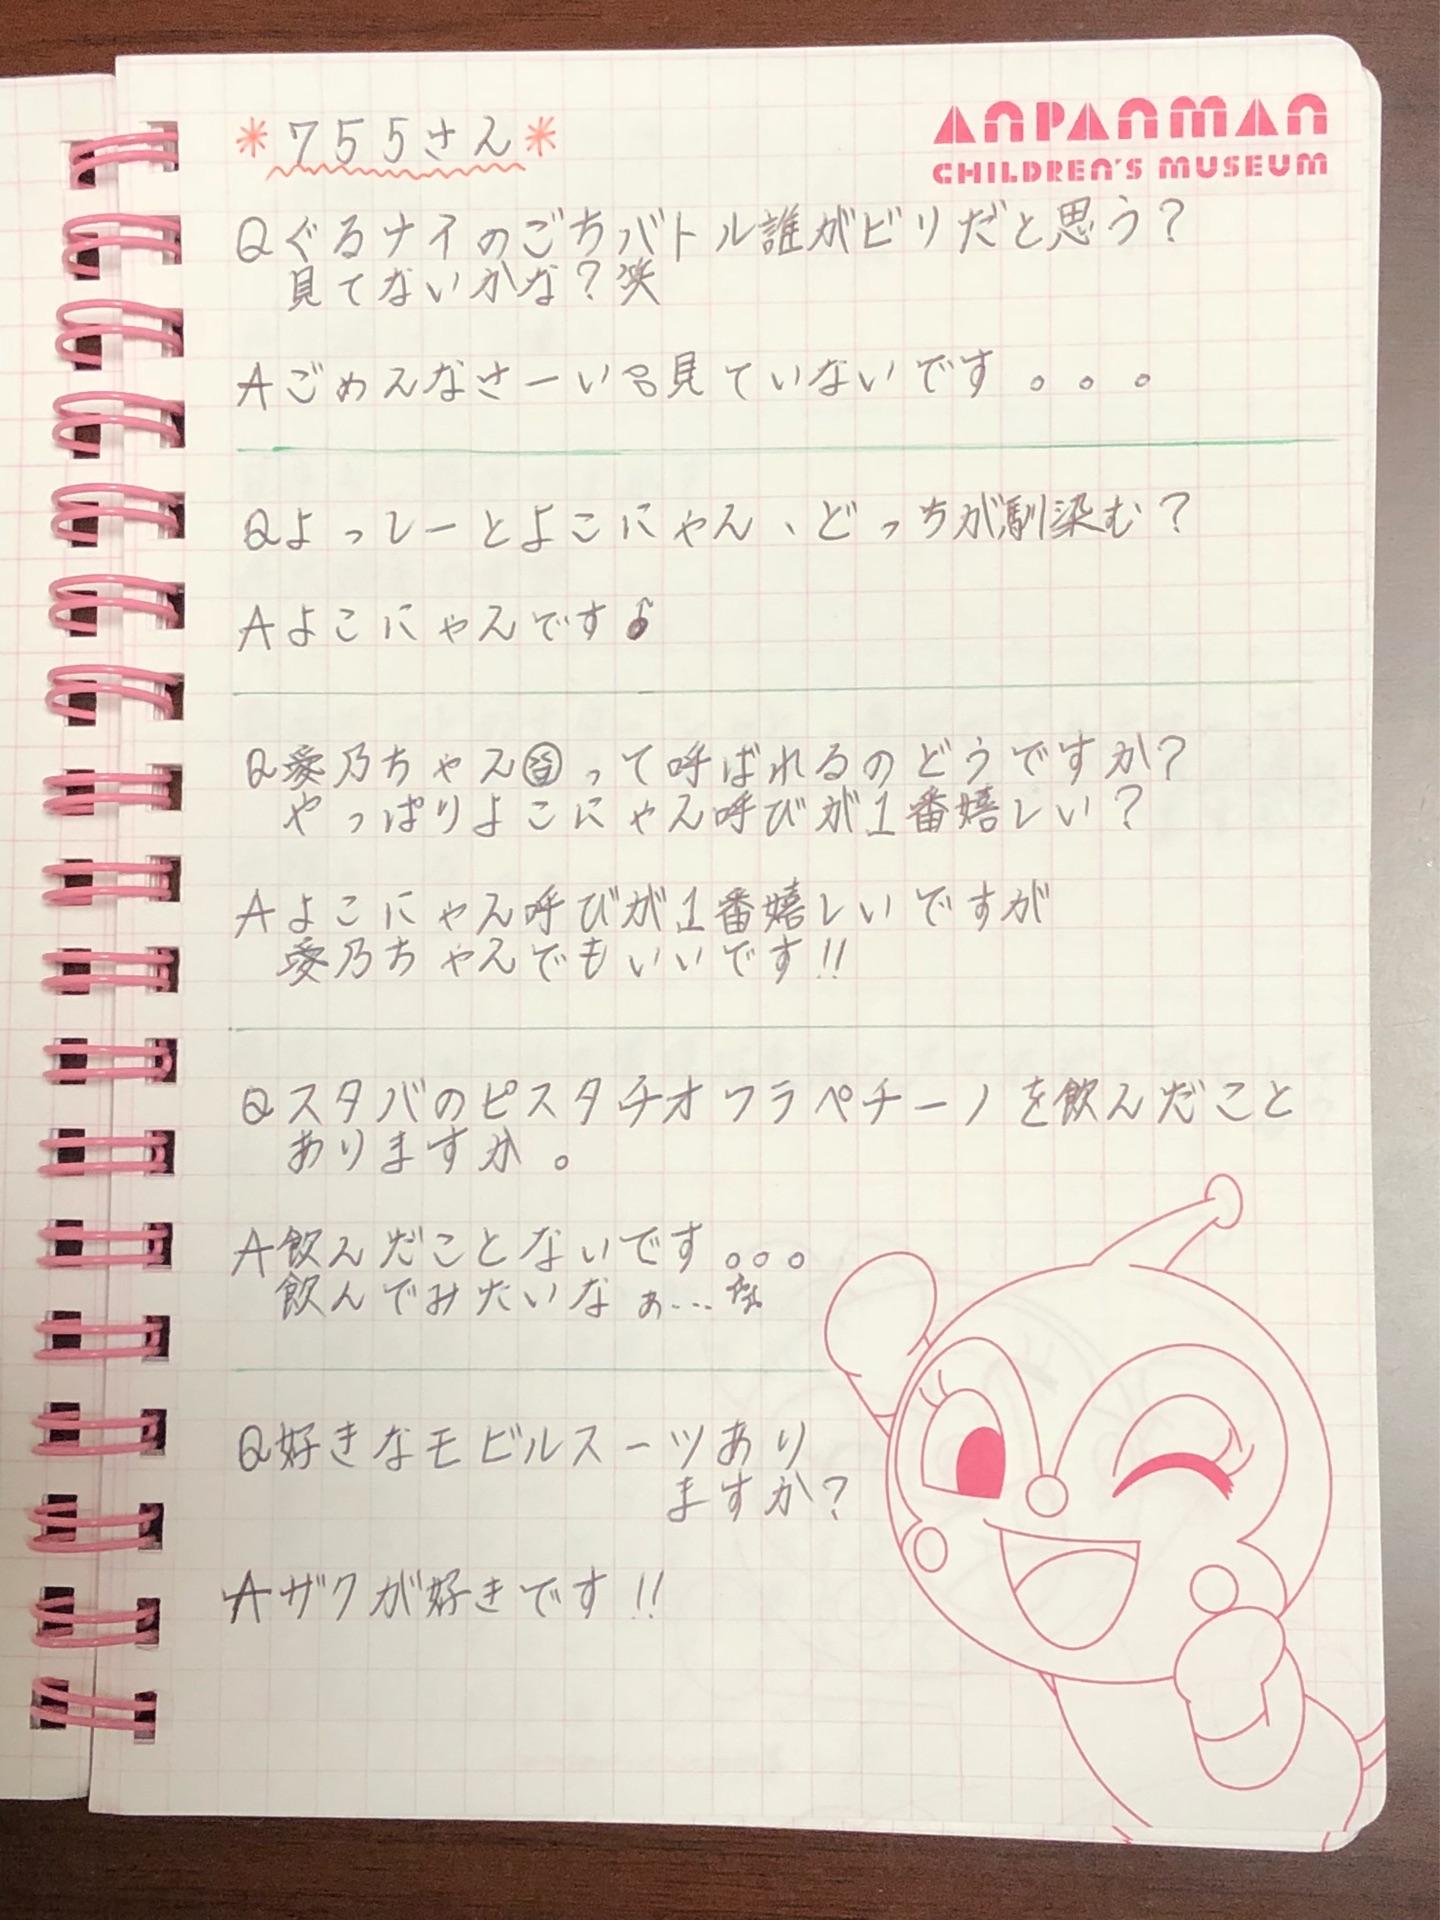 ANPANMAN
CHILDREN'S MUSEUM
*755さん*
Qぐるナイのごちバトル誰がビリだと思う?
見てないかな?笑
Aごめんなさーい見ていないです。。。
Qよっしーとよこにゃん、どっちが馴染む?
Aよこにゃんです♪
Q愛乃ちゃんって呼ばれるのどうですか?
やっぱりよこにゃん呼びが1番嬉しい?
Aよこにゃん呼びが1番嬉しいですが
愛乃ちゃんでもいいです!!
Qスタバのピスタチオフラペチーノを飲んだこと
ありますか。
A飲んだことないです。。。
飲んでみたいなぁ...
Q好きなモビルスーツあり
ますか?
Aザクが好きです!!